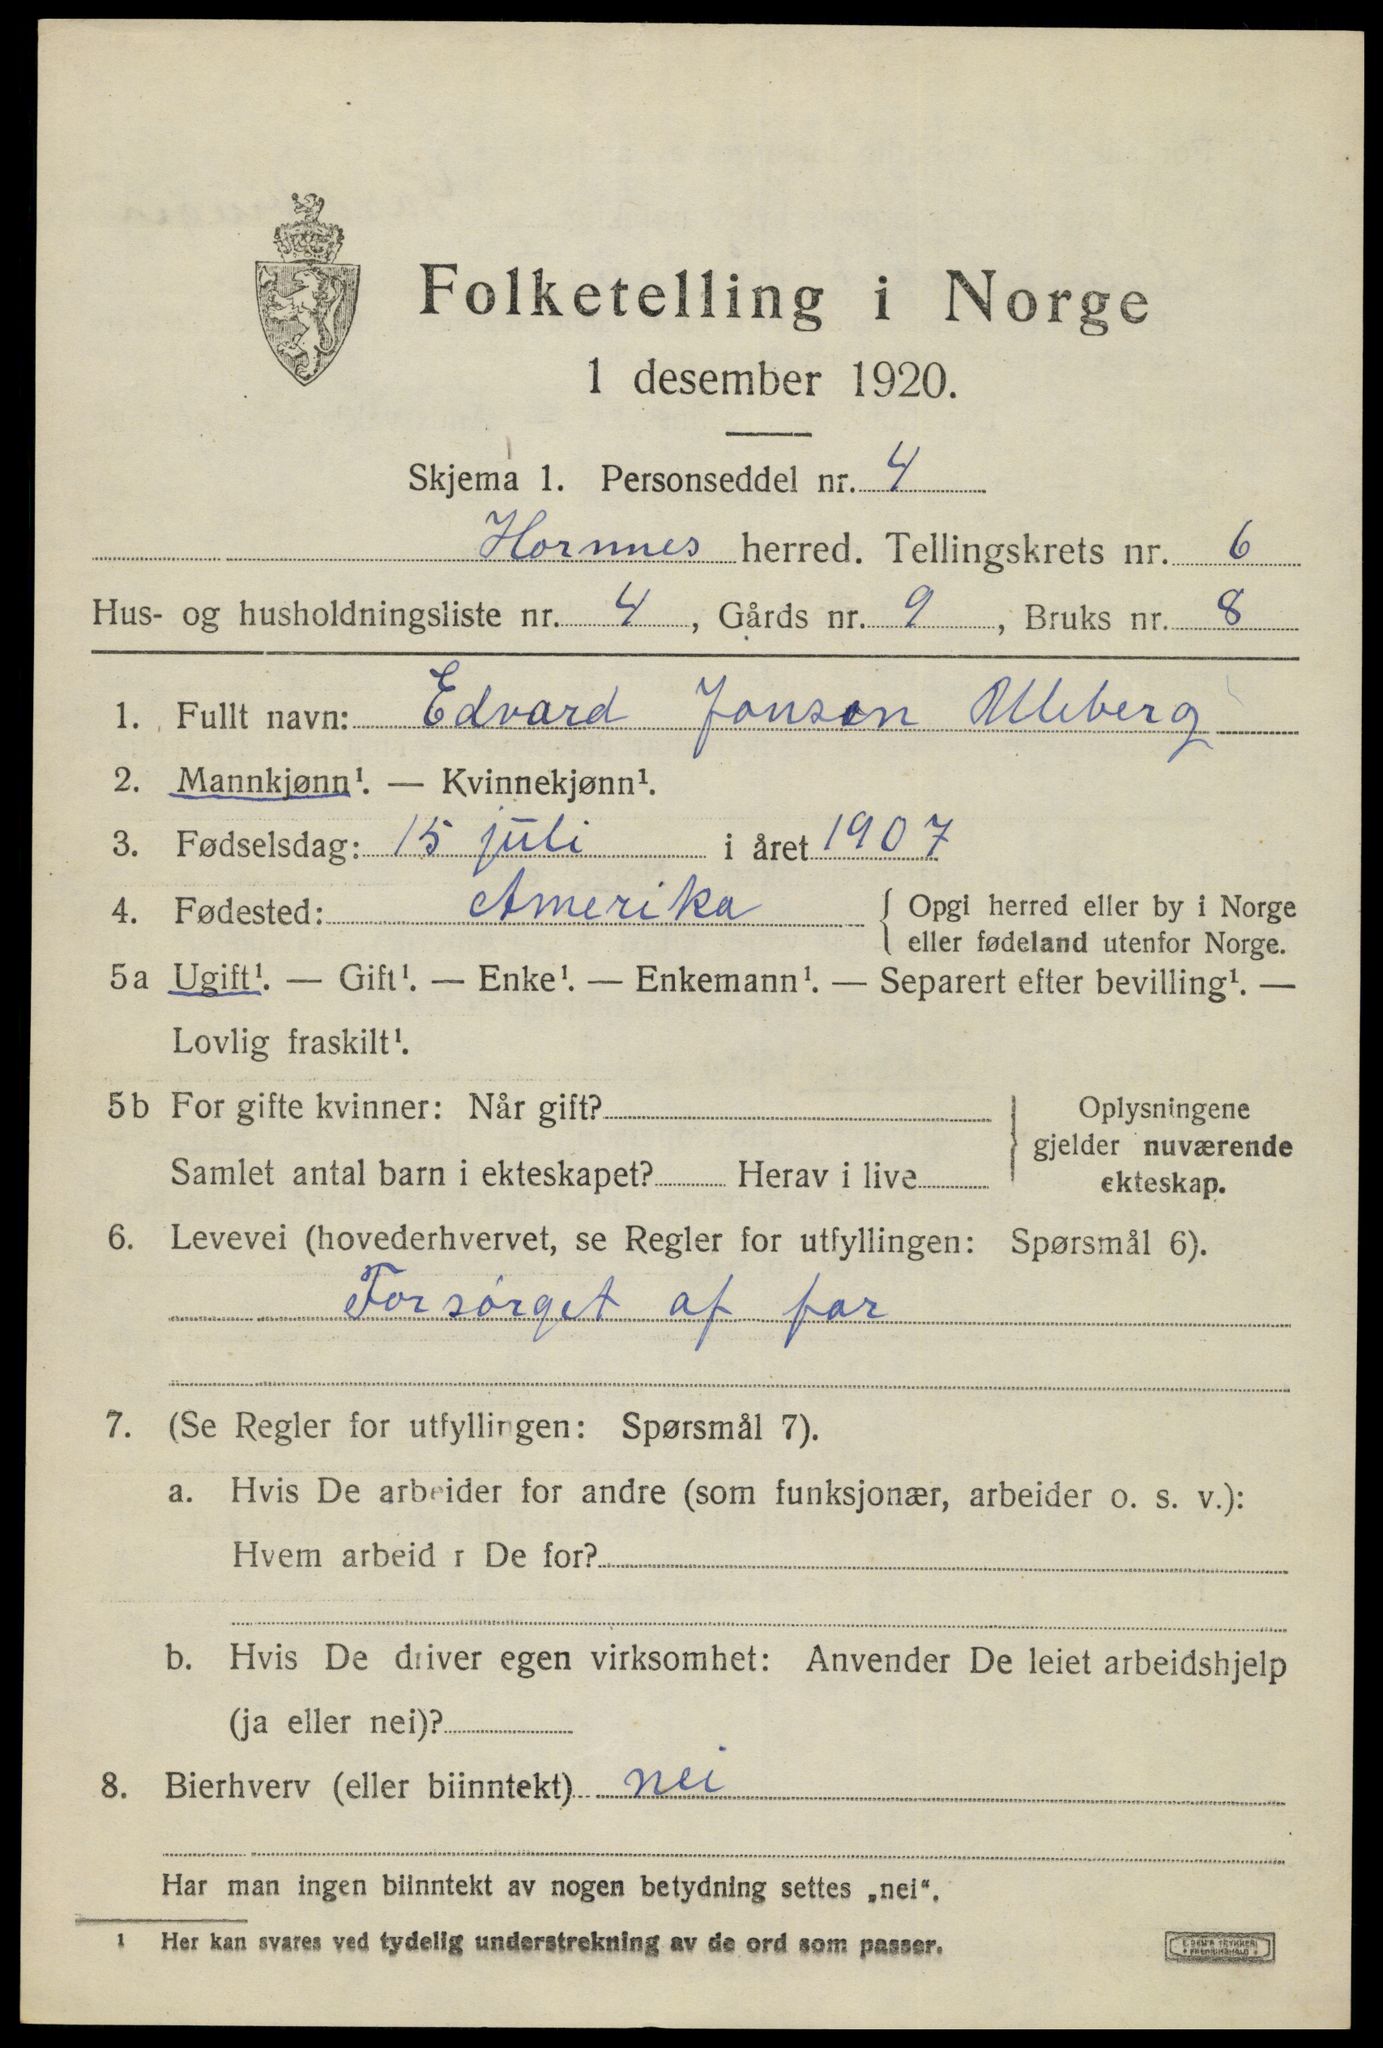 Folketelling i Norge
1 desember 1920.
Skjema 1. Personseddel nr. 4
Hornnes herred. Tellingskrets nr. 6
Hus- og husholdningsliste nr. 4, Gårds nr. 9, Bruks nr. 8
1. Fullt navn: Edvard Jonsen Uleberg
2. Mannkjønn¹. — Kvinnekjønn¹.
3. Fødselsdag: 15 juli i året 1907
4. Fødested: Amerika { Opgi herred eller by i Norge
eller fødeland utenfor Norge.
5a Ugift¹. — Gift¹. — Enke¹. — Enkemann¹. — Separert efter bevilling¹. —
Lovlig fraskilt¹.
5b For gifte kvinner: Når gift? } Oplysningene
gjelder nuværende
Samlet antal barn i ekteskapet? Herav i live
ekteskap.
6. Levevei (hovederhvervet, se Regler for utfyllingen: Spørsmål 6).
Forsørget af far
7. (Se Regler for utfyllingen: Spørsmål 7).
a. Hvis De arbeider for andre (som funksjonær, arbeider o. s. v.):
Hvem arbeid r De for?
b. Hvis De driver egen virksomhet: Anvender De leiet arbeidshjelp
(ja eller nei)?
8. Bierhverv (eller biinntekt) nei
Har man ingen biinntekt av nogen betydning settes „nei“.
¹ Her kan svares ved tydelig understrekning av de ord som passer.